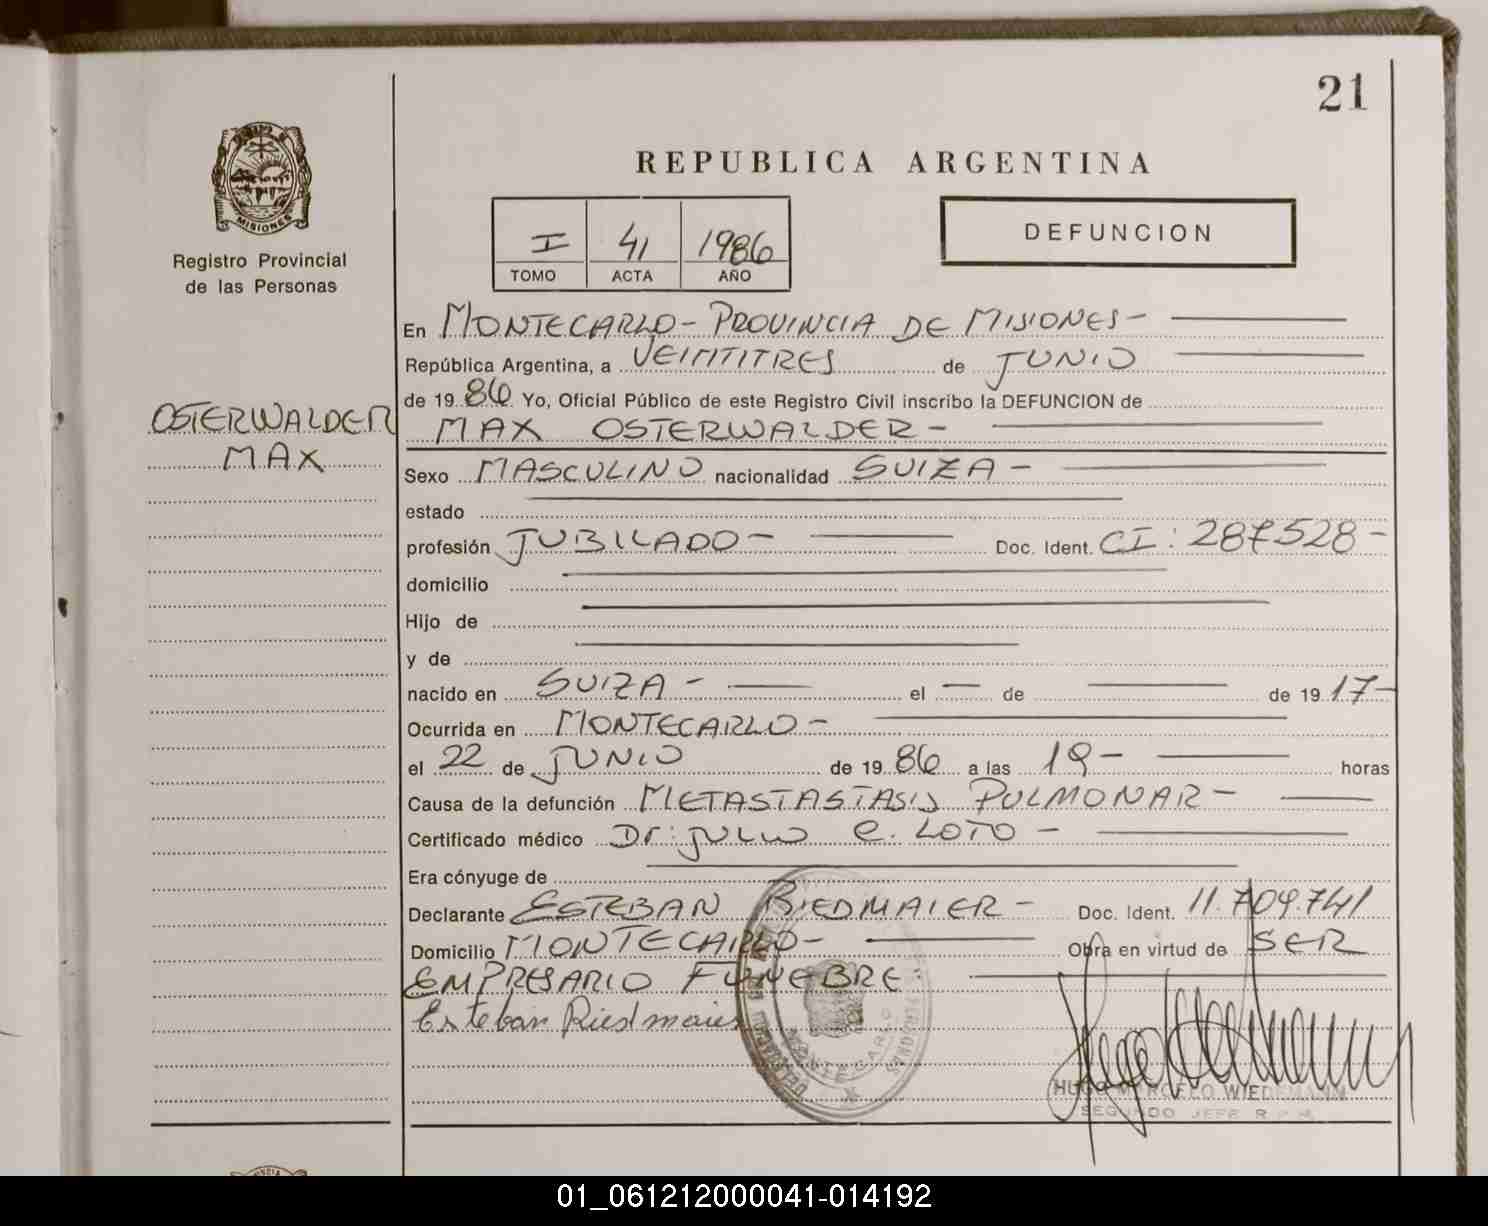 21
REPUBLICA ARGENTINA
MISIONES
Registro Provincial
de las Personas
I 41 1986
TOMO ACTA AÑO
DEFUNCION
OSTERWALDER
MAX
En MONTECARLO - PROVINCIA DE MISIONES -
República Argentina, a VEINTITRES de JUNIO
de 1986 Yo, Oficial Público de este Registro Civil inscribo la DEFUNCION de
MAX OSTERWALDER -
Sexo MASCULINO nacionalidad SUIZA -
estado
profesión JUBILADO - Doc. Ident. CI: 287528 -
domicilio
Hijo de
y de
nacido en SUIZA - el — de — de 1917 -
Ocurrida en MONTECARLO -
el 22 de JUNIO de 1986 a las 19 - horas
Causa de la defunción METASTASTASIS PULMONAR -
Certificado médico Dr: JULIO C. LOTO -
Era cónyuge de
Declarante ESTEBAN RIEDMAIER - Doc. Ident. 11.709.741
Domicilio MONTECARLO - Obra en virtud de SER
EMPRESARIO FUNEBRE -
Esteban Riedmaier
MONTECARLO
HUGO MARCELO WIEDEMANN
SEGUNDO JEFE R.P.M.
01_061212000041-014192